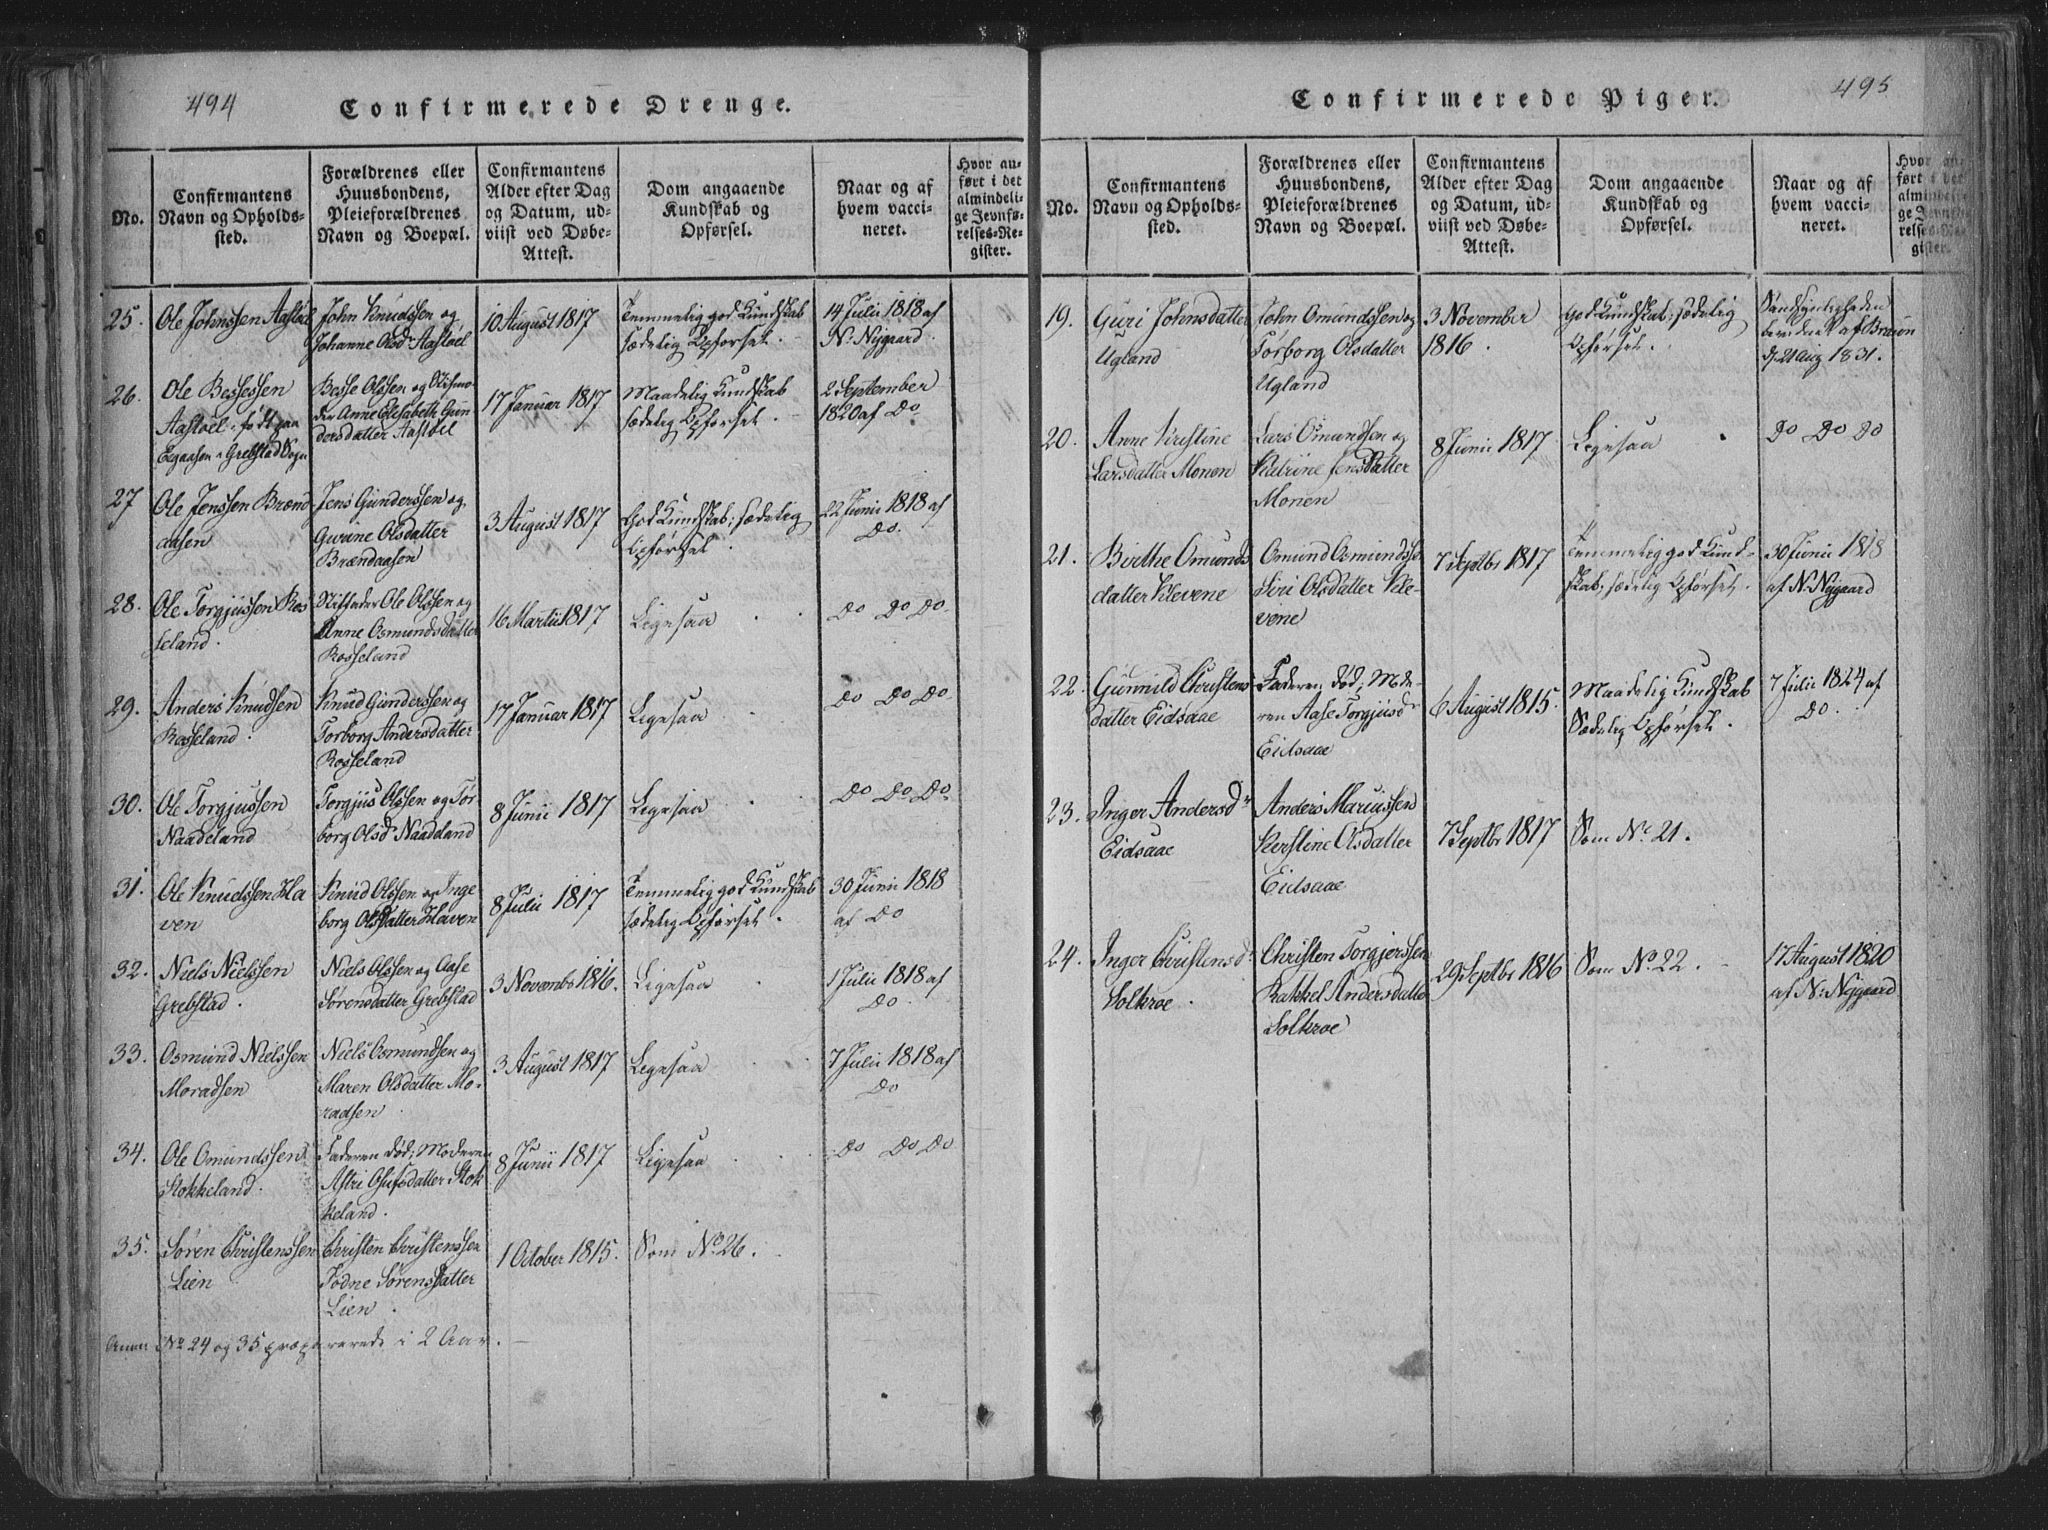 494
Confirmerede Drenge.
No.
Confirmantens
Navn og Opholds-
sted.
Forældrenes eller
Huusbondens,
Pleieforældrenes
Navn og Boepæl.
Confirmantens
Alder efter Dag
og Datum, ud-
viist ved Døbe-
Attest.
Dom angaaende
Kundskab og
Opførsel.
Naar og af
hvem vacci-
neret.
Hvor an-
ført i det
almindeli-
ge Jevnfø-
relses-Re-
gister.
25.
Ole Johnssen Aastøel
John Knudssen og
Johanne Olsd. Aastøel
10 August 1817
Temmelig god Kundskab
sædelig Opførsel.
14 Julii 1818 af
N. Nygaard.
26.
Ole Bessesen
Aastøel, født paa
Egaasen i Grebstad Sogn
Besse Olssen og Stifmo-
der Anne Elisabeth Gun
dersdatter Aastøel
17 Januar 1817
Maadelig Kundskab
sædelig Opførsel.
2 September
1820 af Do
27
Ole Jenssen Brænd
aasen
Jens Gunderssen og
Gurine Olsdatter
Brændaasen
3 August 1817
God Kundskab; sædelig
Opførsel.
22 Junii 1818 af
Do.
28.
Ole Torgjussen Ros
seland.
Stiffader Ole Olssen og
Anne Osmundsdatter
Rosseland
16 Martii 1817
Ligesaa
Do Do Do
29.
Anders Knudsen
Rosseland.
Knud Gunderssen og
Torborg Andersdatter
Rosseland
17 Januar 1817
Ligesaa
Do Do Do
30.
Ole Torgjussen
Naadeland
Torgjus Olssen og Tor
borg Olsd. Naadeland
8 Junii 1817
Ligesaa
Do Do Do
31.
Ole Knudssen Ha
ven
Knud Olssen og Inge
borg Olsdatter Haven
8 Julii 1817
Temmelig god Kundskab
sædelig Opførsel.
30 Junii 1818
af Do
32.
Niels Nielssen
Grebstad.
Niels Olssen og Aase
Sørensdatter Grebstad
3 Novembr 1816.
Ligesaa
1 Julii 1818 af
Do.
33.
Osmund Nielssen
Moradsen
Niels Osmundsen og
Maren Olsdatter Mo-
radsen.
3 August 1817
Ligesaa
7 Julii 1818 af
Do
34.
Ole Omundssen
Stokkeland.
Faderen død; Moderen
Astri Olufsdatter Stok
keland.
8 Junii 1817
Ligesaa
Do Do Do
35.
Søren Christenssen
Lien
Christen Christenssen
Todne Sørensdatter
Lien.
1 October 1815.
Som No 26.
Anm No 24 og 35 præparerede i 2 Aar.
495
Confirmerede Piger.
No.
Confirmantens
Navn og Opholds-
sted.
Forældrenes eller
Huusbondens,
Pleieforældrenes
Navn og Boepæl.
Confirmantens
Alder efter Dag
og Datum, ud-
viist ved Døbe-
Attest.
Dom angaaende
Kundskab og
Opførsel.
Naar og af
hvem vacci-
neret.
Hvor an-
ført i det
almindeli-
ge Jevnfø-
relses-Re-
gister.
19.
Guri Johnsdatter
Ugland
John Omundssen og
Torborg Olsdatter
Ugland
3 November
1816.
God Kundskab; sædelig
Opførsel.
Sandsynligheden
bevidnet af Bruun
d. 21 Aug 1831.
20.
Anne Kristine
Larsdatter Monen
Lars Omundsen og
Katrine Jensdatter
Monen
8 Junii 1817
Ligesaa
Do Do Do
21.
Birthe Omunds
datter Klevene
Osmund Osmundssen
Siri Olsdatter Kle-
vene
7 Septbr 1817
Temmelig god Kund-
skab; sædelig Opførsel.
30 Junii 1818
af N. Nygaard
22.
Gunnild Christens
datter Eidsaae
Faderen død; Mode-
ren Aase Torgjusdr
Eidsaae
6 August 1815.
Maadelig Kundskab
Sædelig Opførsel.
7 Julii 1824 af
Do.
23.
Inger Andersdr
Eidsaae
Anders Mariussen
Kerstine Olsdatter
Eidsaae
7 Septbr 1817
Som No. 21.
24.
Inger Christensdr
Solkroe.
Christen Torgjerssen
Rakkel Andersdatter
Solkroe
29 Septbr 1816
Som No. 22.
17 August 1820
af N. Nygaard